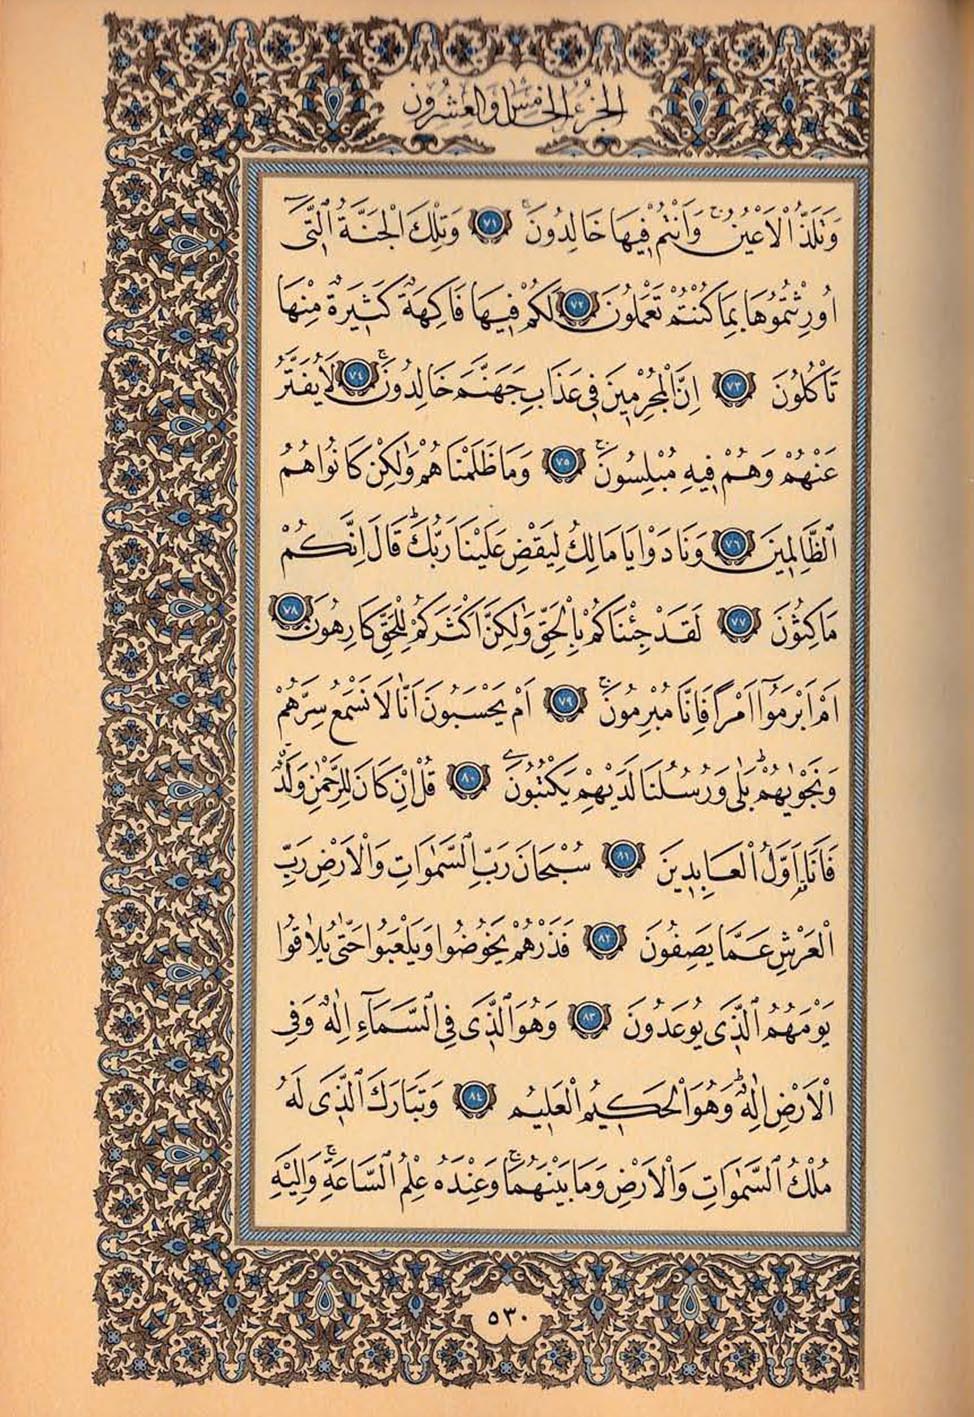 الجزء الخامس والعشرون
وَتَلَذُّ الْاَعْيُنُۚ وَاَنْتُمْ فٖيهَا خَالِدُونَۚ ﴿٧١﴾ وَتِلْكَ الْجَنَّةُ الَّتٖٓى
اُورِثْتُمُوهَا بِمَا كُنْتُمْ تَعْمَلُونَ ﴿٧٢﴾ لَكُمْ فٖيهَا فَاكِهَةٌ كَثٖيرَةٌ مِنْهَا
تَاْكُلُونَ ﴿٧٣﴾ اِنَّ الْمُجْرِمٖينَ فٖى عَذَابِ جَهَنَّمَ خَالِدُونَۚ ﴿٧٤﴾ لَا يُفَتَّرُ
عَنْهُمْ وَهُمْ فٖيهِ مُبْلِسُونَۚ ﴿٧٥﴾ وَمَا ظَلَمْنَاهُمْ وَلٰكِنْ كَانُوا هُمُ
الظَّالِمٖينَ ﴿٧٦﴾ وَنَادَوْا يَا مَالِكُ لِيَقْضِ عَلَيْنَا رَبُّكَۜ قَالَ اِنَّكُمْ
مَاكِثُونَ ﴿٧٧﴾ لَقَدْ جِئْنَاكُمْ بِالْحَقِّ وَلٰكِنَّ اَكْثَرَكُمْ لِلْحَقِّ كَارِهُونَ ﴿٧٨﴾
اَمْ اَبْرَمُٓوا اَمْرًا فَاِنَّا مُبْرِمُونَۚ ﴿٧٩﴾ اَمْ يَحْسَبُونَ اَنَّا لَا نَسْمَعُ سِرَّهُمْ
وَنَجْوٰيهُمْۜ بَلٰى وَرُسُلُنَا لَدَيْهِمْ يَكْتُبُونَ ﴿٨٠﴾ قُلْ اِنْ كَانَ لِلرَّحْمٰنِ وَلَدٌۗ
فَاَنَا۬ اَوَّلُ الْعَابِدٖينَ ﴿٨١﴾ سُبْحَانَ رَبِّ السَّمٰوَاتِ وَالْاَرْضِ رَبِّ
الْعَرْشِ عَمَّا يَصِفُونَ ﴿٨٢﴾ فَذَرْهُمْ يَخُوضُوا وَيَلْعَبُوا حَتّٰى يُلَاقُوا
يَوْمَهُمُ الَّذٖى يُوعَدُونَ ﴿٨٣﴾ وَهُوَ الَّذٖى فِى السَّمَٓاءِ اِلٰهٌ وَفِى
الْاَرْضِ اِلٰهٌۜ وَهُوَ الْحَكٖيمُ الْعَلٖيمُ ﴿٨٤﴾ وَتَبَارَكَ الَّذٖى لَهُ
مُلْكُ السَّمٰوَاتِ وَالْاَرْضِ وَمَا بَيْنَهُمَاۚ وَعِنْدَهُ عِلْمُ السَّاعَةِۚ وَاِلَيْهِ
٥٣٠